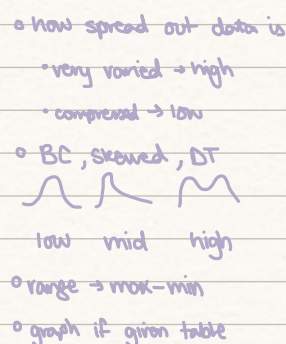 how spread out data is
very varied → high
compressed → low
BC, skewed, DT
low mid high
range → max-min
graph if given table